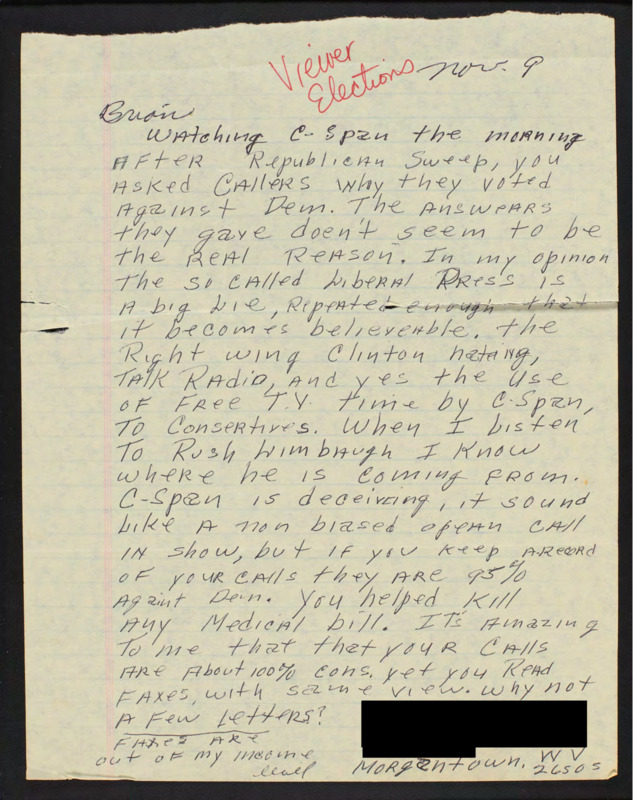 Viewer
Elections Nov. 9
Brian
Watching C-Span the morning
After Republican Sweep, you
asked callers why they voted
against Dem. The answears
they gave doen't seem to be
the real reason. In my opinion
the so called Liberal Press is
a big lie, repeated enough that
it becomes believeable. The
Right wing Clinton hating,
Talk Radio, and yes the use
of free T.V. time by C-Span,
to Consertives. When I listen
to Rush Limbaugh I know
where he is coming from.
C-Span is deceiving, it sound
like a non biased opean call
in show, but if you keep a record
of your calls they are 95%
againt Dem. You helped kill
any Medical bill. It's amazing
to me that that your calls
are about 100% cons. yet you read
faxes, with same view. Why not
a few letters?
Faxes are
out of my income
level
Morgantown. WV
26505